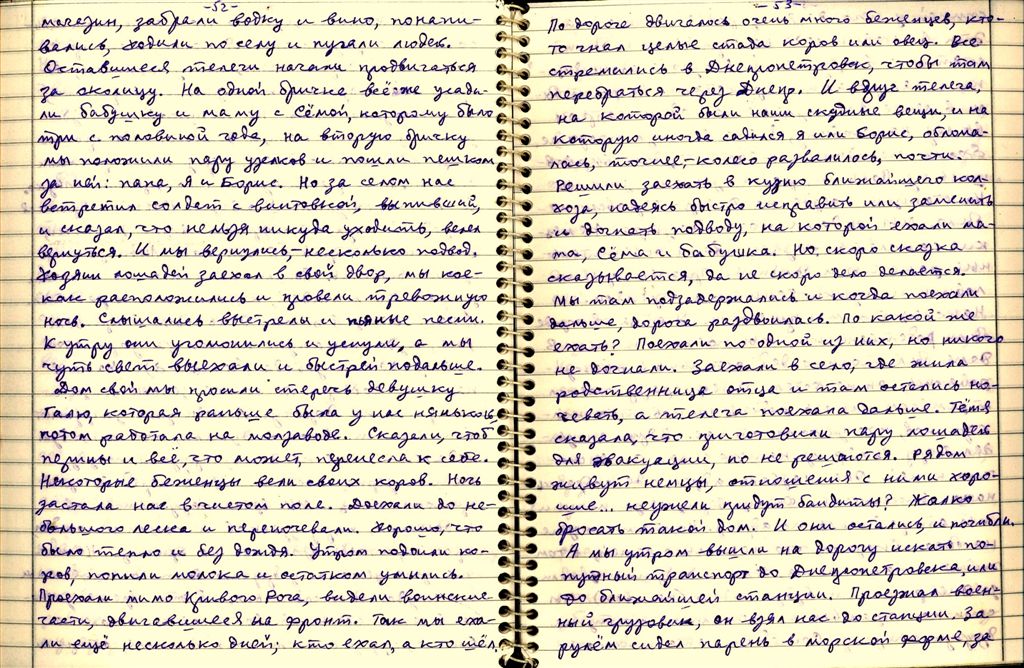 -52-
магазин, забрали водку и вино, понапи-
вались, ходили по селу и пугали людей.
Оставшиеся телеги начали продвигаться
за околицу. На одной бричке всё же усади-
ли бабушку и маму с Сёмой, которому было
три с половиной года, на вторую бричку
мы положили пару узелков и пошли пешком
за ней: папа, я и Борис. Но за селом нас
встретил солдат с винтовкой, выпивший,
и сказал, что нельзя никуда уходить, велел
вернуться. И мы вернулись, – несколько подвод.
Хозяин лошадей заехал в свой двор, мы кое-
как расположились и провели тревожную
ночь. Слышались выстрелы и пьяные песни.
К утру они угомонились и уснули, а мы
чуть свет выехали и быстрей подальше.
Дом свой мы просили стеречь девушку
Галю, которая раньше была у нас нянькой,
потом работала на молзаводе. Сказали, чтоб
перины и всё, что может, перенесла к себе.
Некоторые беженцы вели своих коров. Ночь
застала нас в чистом поле. Доехали до не-
большого леска и переночевали. Хорошо, что
было тепло и без дождя. Утром подоили ко-
ров, попили молока и остатком умылись.
Проехали мимо Кривого Рога, видели воинские
части, двигавшиеся на фронт. Так мы еха-
ли ещё несколько дней; кто ехал, а кто шёл.
-53-
По дороге двигалось очень много беженцев, кто-
то гнал целые стада коров или овец. Все
стремились в Днепропетровск, чтобы там
перебраться через Днепр. И вдруг телега,
на которой были наши скудные вещи, и на
которую иногда садился я или Борис, облома-
лась, точнее, – колесо развалилось, почти.
Решили заехать в кузню ближайшего кол-
хоза, надеясь быстро исправить или заменить
и догнать подводу, на которой ехали ма-
ма, Сёма и бабушка. Но скоро сказка
сказывается, да не скоро дело делается.
Мы там подзадержались и когда поехали
дальше, дорога раздвоилась. По какой же
ехать? Поехали по одной из них, но никого
не догнали. Заехали в село, где жила
родственница отца и там остались но-
чевать, а телега поехала дальше. Тётя
сказала, что приготовили пару лошадей
для эвакуации, но не решаются. Рядом
живут немцы, отношения с ними хоро-
шие... неужели придут бандиты? Жалко
бросать такой дом. И они остались, и погибли.
А мы утром вышли на дорогу искать по-
путный транспорт до Днепропетровска, или
до ближайшей станции. Проезжал воен-
ный грузовик, он взял нас до станции. За
рулём сидел парень в морской форме, за